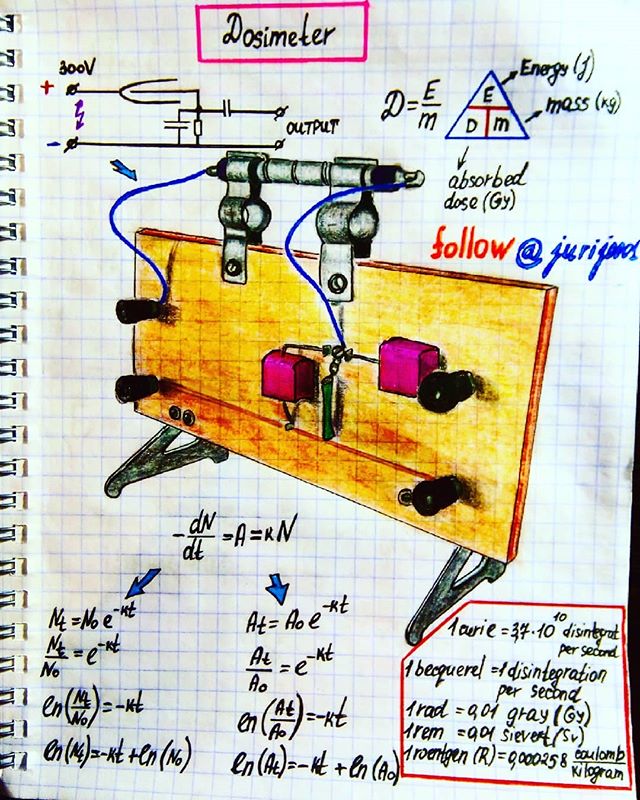 Dosimeter
300V
+
-
OUTPUT
D = E/m
E
D m
Energy (J)
mass (kg)
absorbed
dose (Gy)
follow @jurijpoos
-dN/dt = A = κN
Nt = N0 e^-κt
Nt/N0 = e^-κt
ln(Nt/N0) = -κt
ln(Nt) = -κt + ln(N0)
At = A0 e^-κt
At/A0 = e^-κt
ln(At/A0) = -κt
ln(At) = -κt + ln(A0)
1 curie = 3,7·10^10 disintegrat
per second
1 becquerel = 1 disintegration
per second
1 rad = 0,01 gray (Gy)
1 rem = 0,01 sievert (Sv)
1 roentgen (R) = 0,000258 coulomb/kilogram